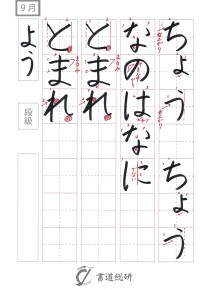 9月
ちょう ちょう
なのはなに
とまれ
とまれ
よう
段級
書道総研